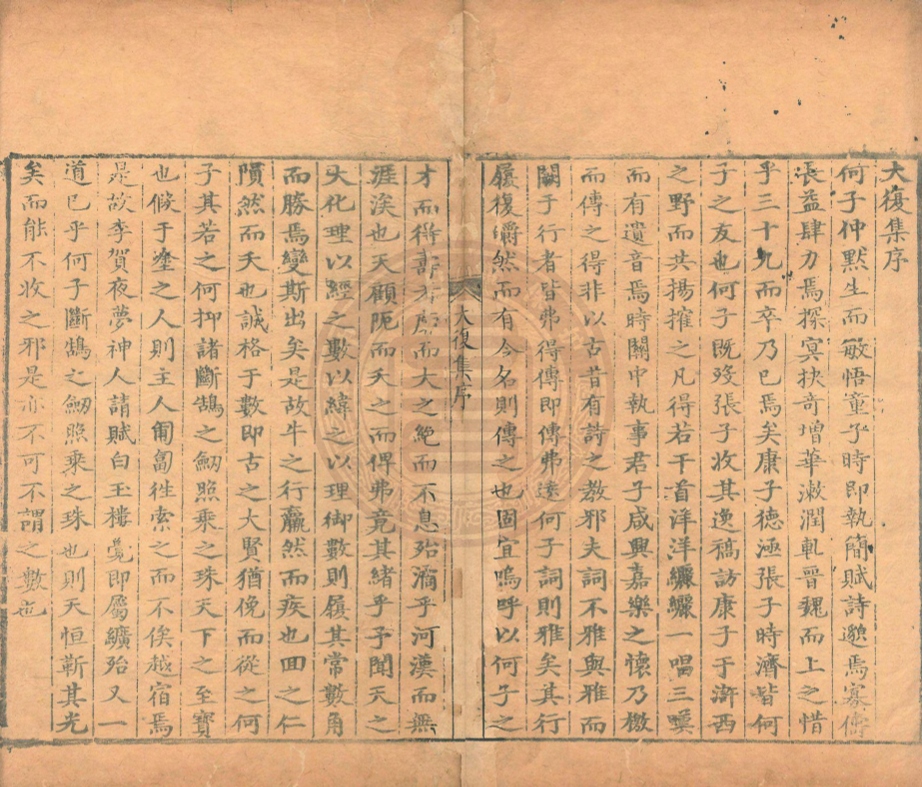 大復集序
何子仲默生而敏悟童子時即執簡賦詩邈焉寡儔
長益肆力焉探冥抉奇增華漱潤軋晉魏而上之惜
乎三十九而卒乃已焉矣康子德涵張子時濟皆何
子之友也何子既歿張子收其逸稿訪康子于滸西
之野而共揚搉之凡得若干首洋洋纚纚一唱三嘆
而有遺音焉時關中執事君子咸興嘉樂之懷乃檄
而傳之得非以古昔有詩之教邪夫詞不雅與雅而
闕于行者皆弗得傳即傳弗遠何子詞則雅矣其行
履復皭然而有今名則傳之也固宜嗚呼以何子之
大復集序
才而得壽充而大之絕而不息殆濔乎河漢而無
涯涘也天顧阨而夭之而俾弗竟其緒乎予聞天之
大化理以經之數以緯之以理御數則履其常數角
而勝焉變斯出矣是故牛之行羸然而疾也回之仁
隕然而夭也誠格于數即古之大賢猶俛而從之何
子其若之何抑諸斷鵠之劒照乘之珠天下之至寶
也假于塗之人則主人匍匐徃索之而不俟越宿焉
是故李賀夜夢神人請賦白玉樓覺即屬纊殆又一
道已乎何子斷鵠之劒照乘之珠也則天恒靳其光
矣而能不收之邪是亦不可不謂之數也